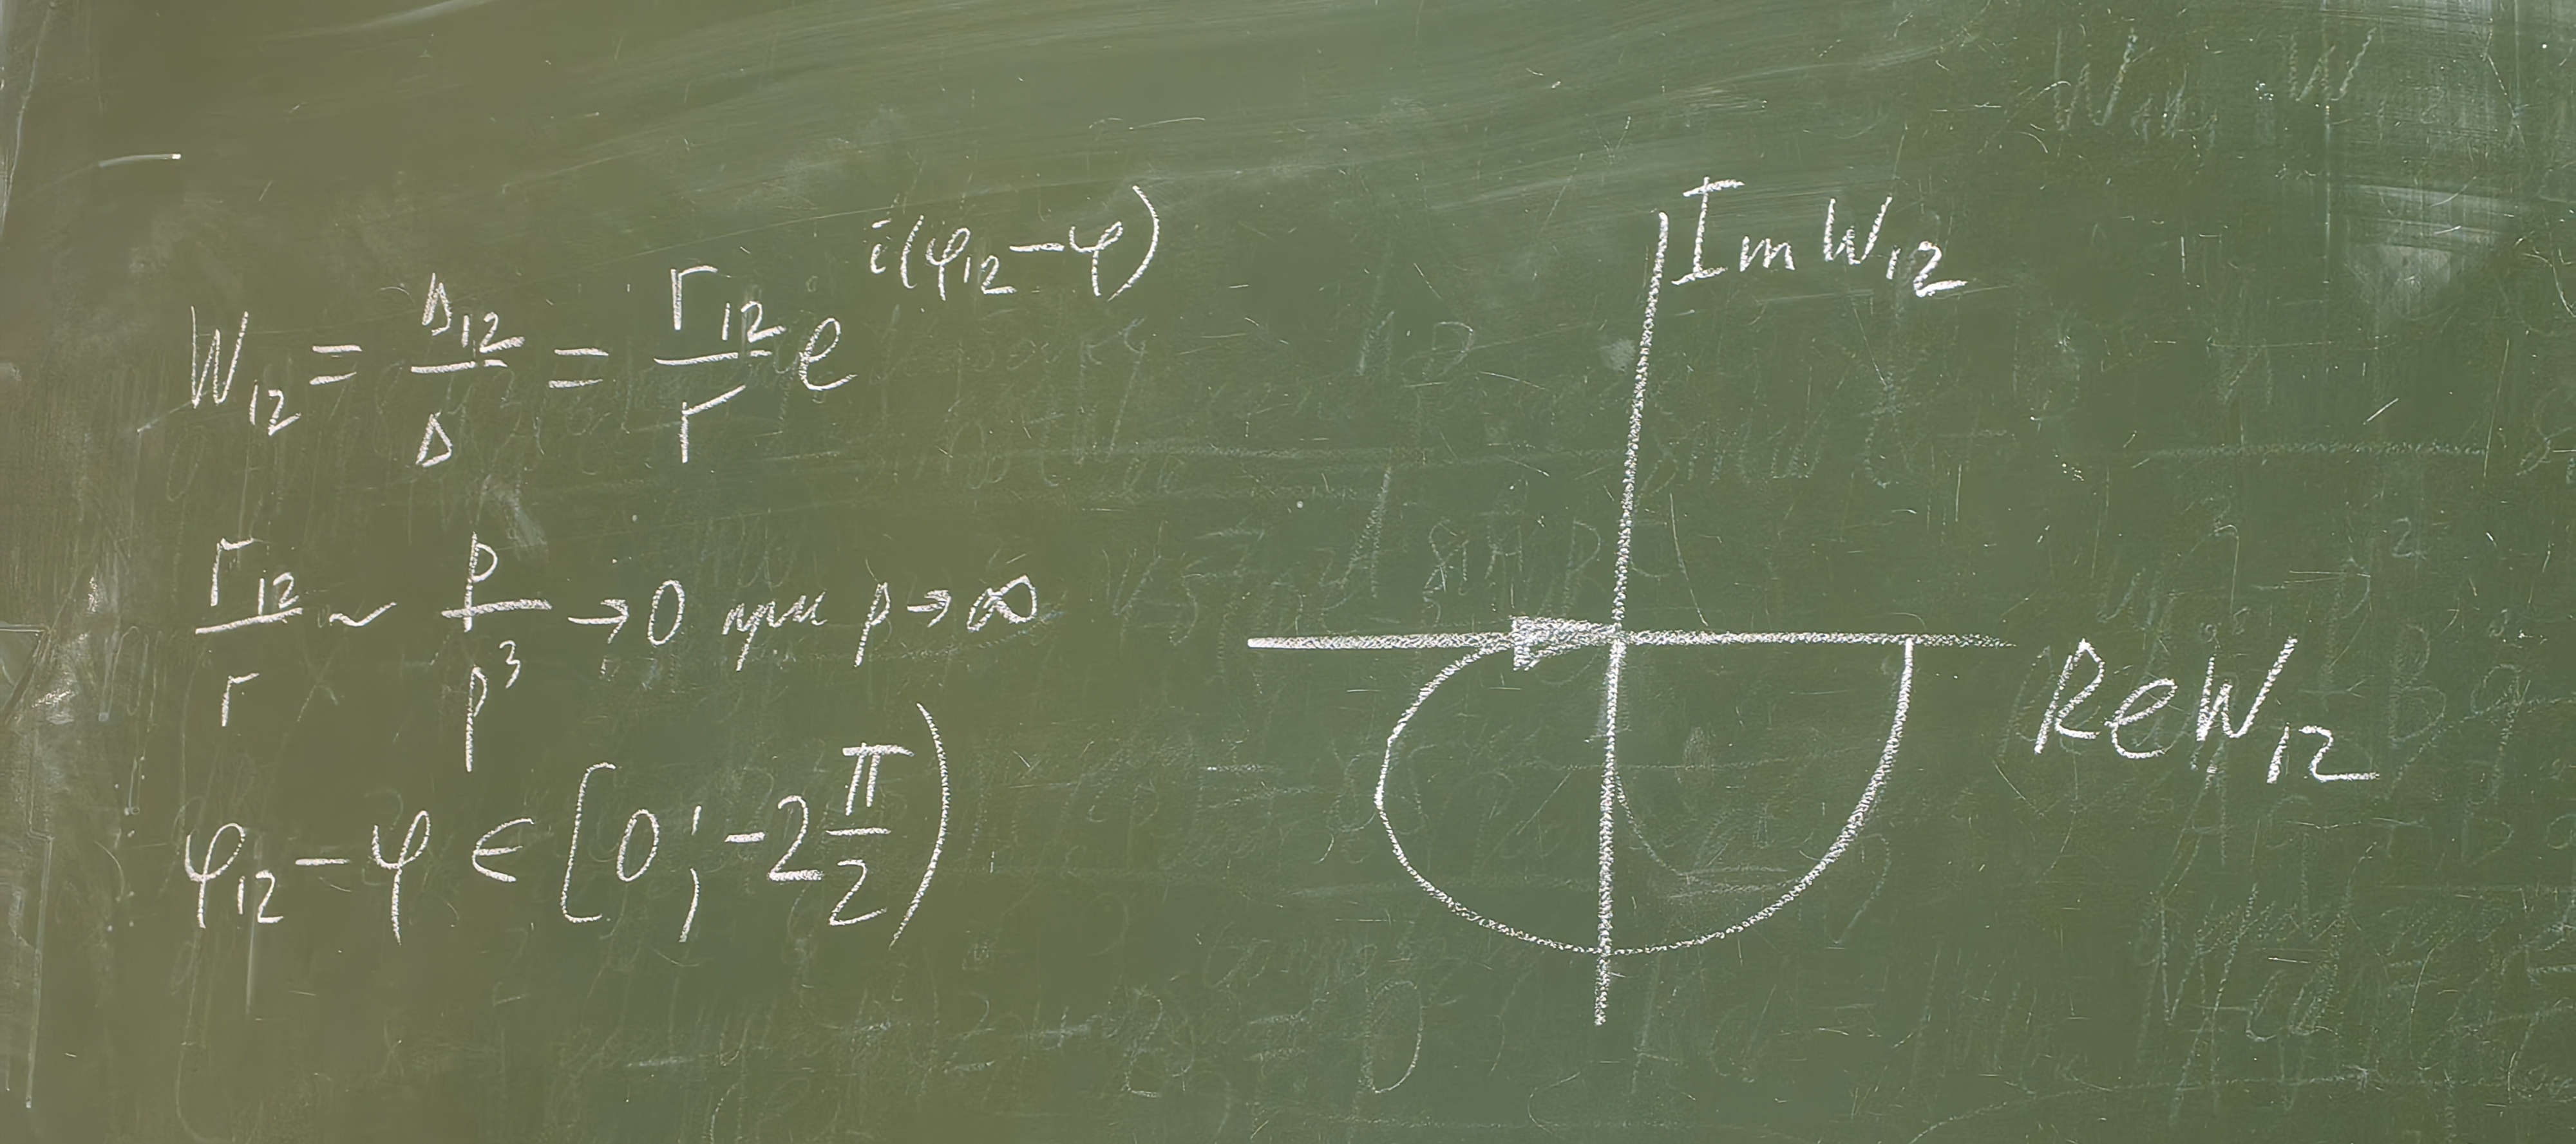 W₁₂ = Δ₁₂/Δ = r₁₂/r e^{i(φ₁₂-φ)}
r₁₂/r ~ p/p³ → 0 при p → ∞
φ₁₂ - φ ∈ [0; -2 π/2)
Im W₁₂
Re W₁₂